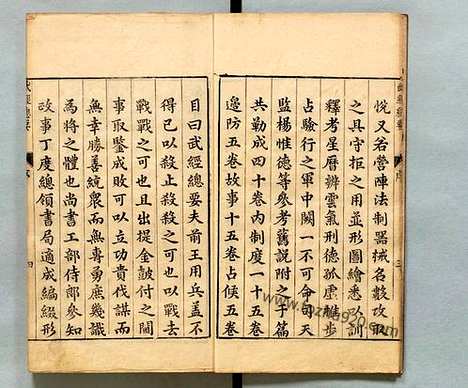 悅又名營陣法制器械名數攻取
之具守拒之用並形圖繪悉以訓
釋考星曆辨雲氣刑德孤虛推步
占驗行之軍中闕一不可命司天
監楊惟德等參考舊說附之于篇
共勒成四十卷內制度一十五卷
邊防五卷故事十五卷占候五卷
目曰武經總要夫前王用兵蓋不
得已以殺止殺殺之可也以戰去
戰戰之可也且出提金鼓付之閫
事取鑒成敗可以立功貴伐謀而
無幸勝善眾而無專勇庶幾識
為將之體也尚書工部侍郎參知
故事丁度總領書局適成編綴形
武經總要 序 四